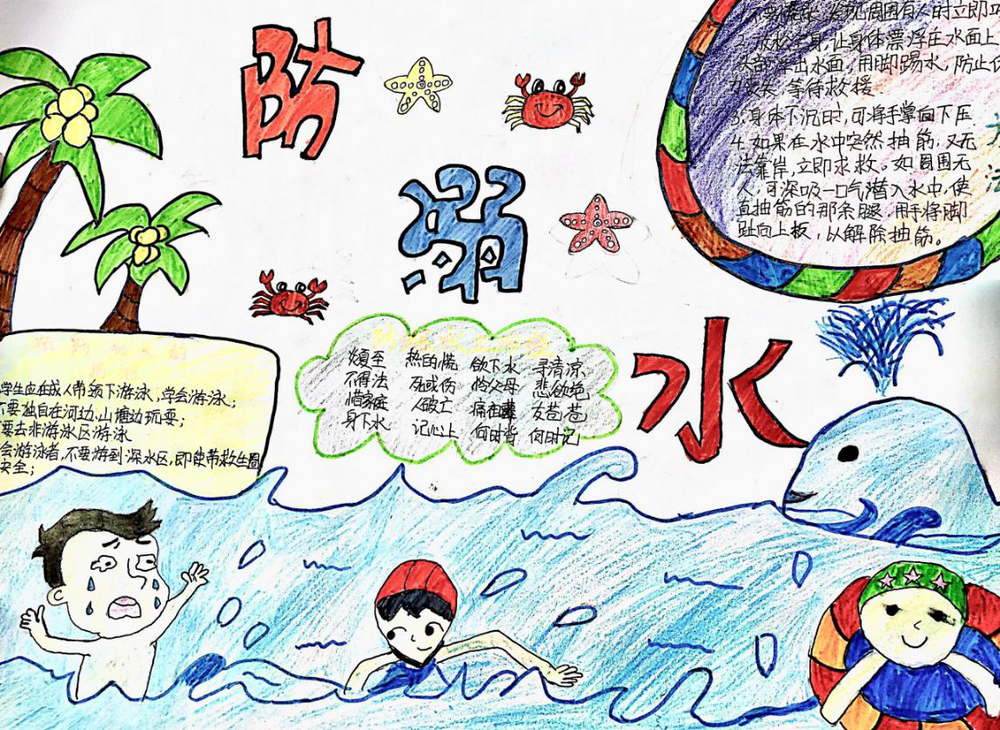 防
溺
水
周围有人时立即
2.放松全身,让身体漂浮在水面上
头部浮出水面,用脚踢水,防止体
力丧失,等待救援
3.身体下沉时,可将手掌向下压
4.如果在水中突然抽筋,又无
法靠岸,立即求救。如周围无
人,可深吸一口气潜入水中,使
直抽筋的那条腿,用手将脚
趾向上板,以解除抽筋。
炎夏至 热的慌 欲下水 寻清凉
不得法 死或伤 怜父母 悲欲绝
惜家庭 人破亡 痛白 友苍苍
身下水 记心上 何时 何时记
学生应在成人带领下游泳,学会游泳;
不要独自在河边,山塘边玩耍;
要去非游泳区游泳
会游泳者,不要游到深水区,即使带救生圈
安全;